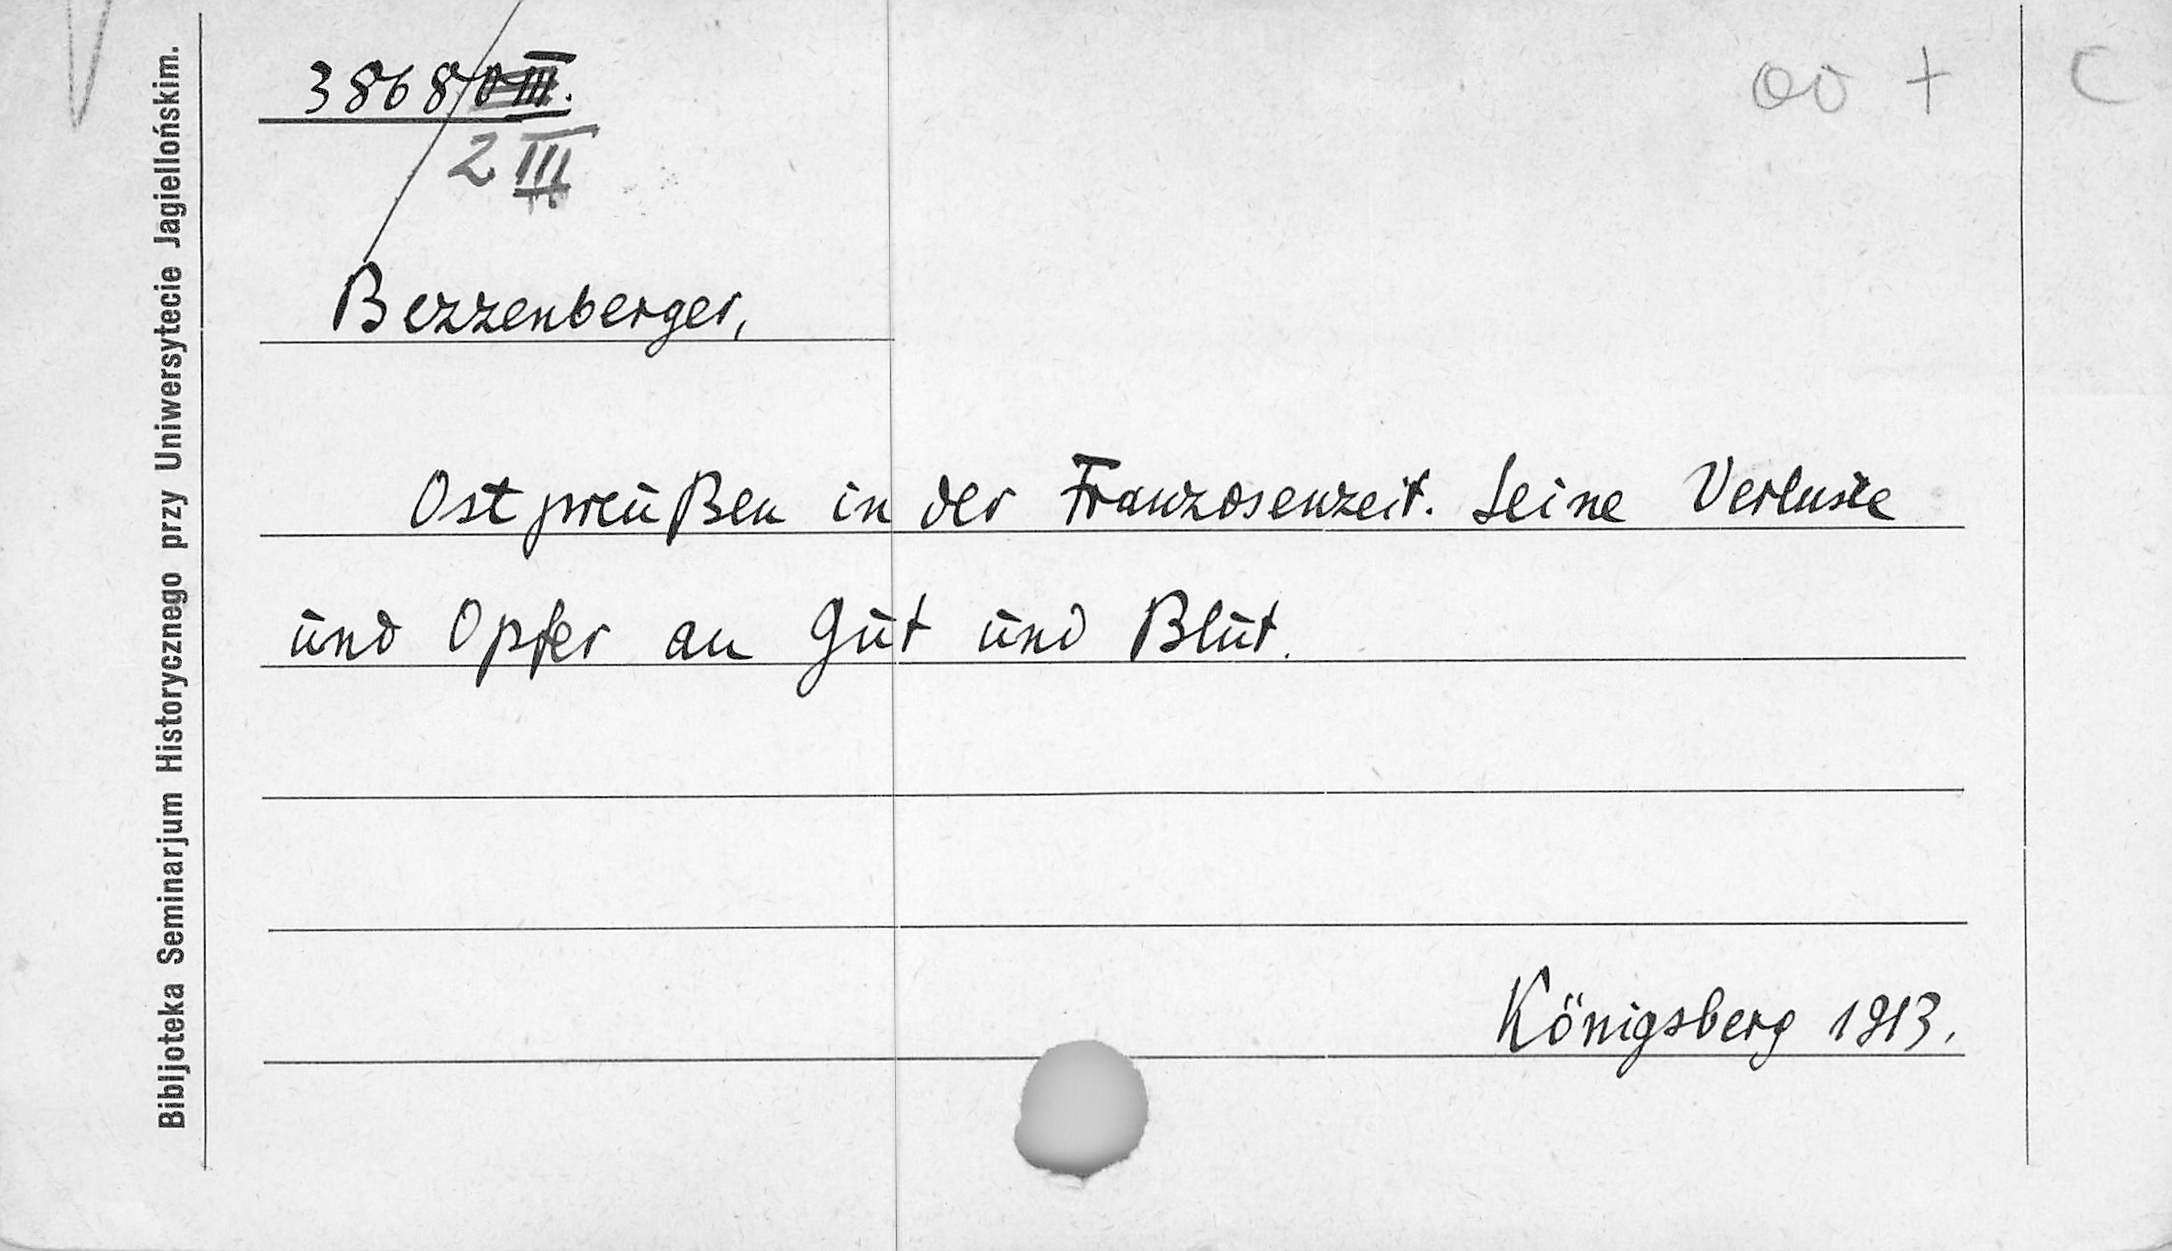 38680 III.
2 III
oo + c
Bezzenberger,
Ostpreußen in der Franzosenzeit. Seine Verluste
und Opfer an Gut und Blut.
Königsberg 1913.
Bibljoteka Seminarjum Historycznego przy Uniwersytecie Jagiellońskim.